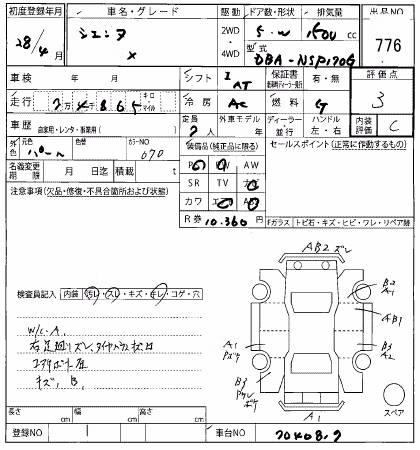 初度登録年月 車名・グレード 駆動 ドア数・形状 排気量 出品NO
28/4 シエンタ X 2WD 4WD 5・W 1500 cc 776
型式 DBA-NSP170G
車検 年 月 シフト I AT 保証書 有・無 評価点
走行 7万4865 キロ マイル 冷房 AC 燃料 G 3
車歴 自家用・レンタ・事業用( ) 定員 7人 外車モデル 年 ディーラー・並行 ハンドル 左・右 内装評価 C
外色 元色 パール 色替 カラーNO 070 装備品(純正品に限る) セールスポイント(正常に作動するもの)
名義変更期限 月 日迄 積載 t
PS PW AW
SR TV ナビ
カワ エアB
注意事項(欠品・修復・不具合箇所および状態) R券 10,360円
Fガラス トビ石・キズ・ヒビ・ワレ・リペア跡
AB2 ズレ
検査員記入 内装 汚レ・スレ・キズ・キレ・コゲ・穴
B2
A1
AB1
W/C・A
右足廻りズレ、タイヤハウス
コアサポート歪
キズ、B、
A1
Pキズ
B3
A2
B3
A1
スペア
長さ cm 幅 cm 高さ cm
登録NO 車台NO 70408.7